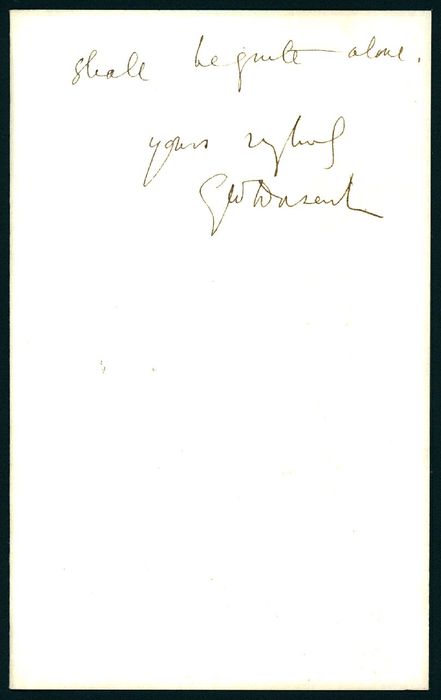 shall be quite alone.
yours
G W Dasent